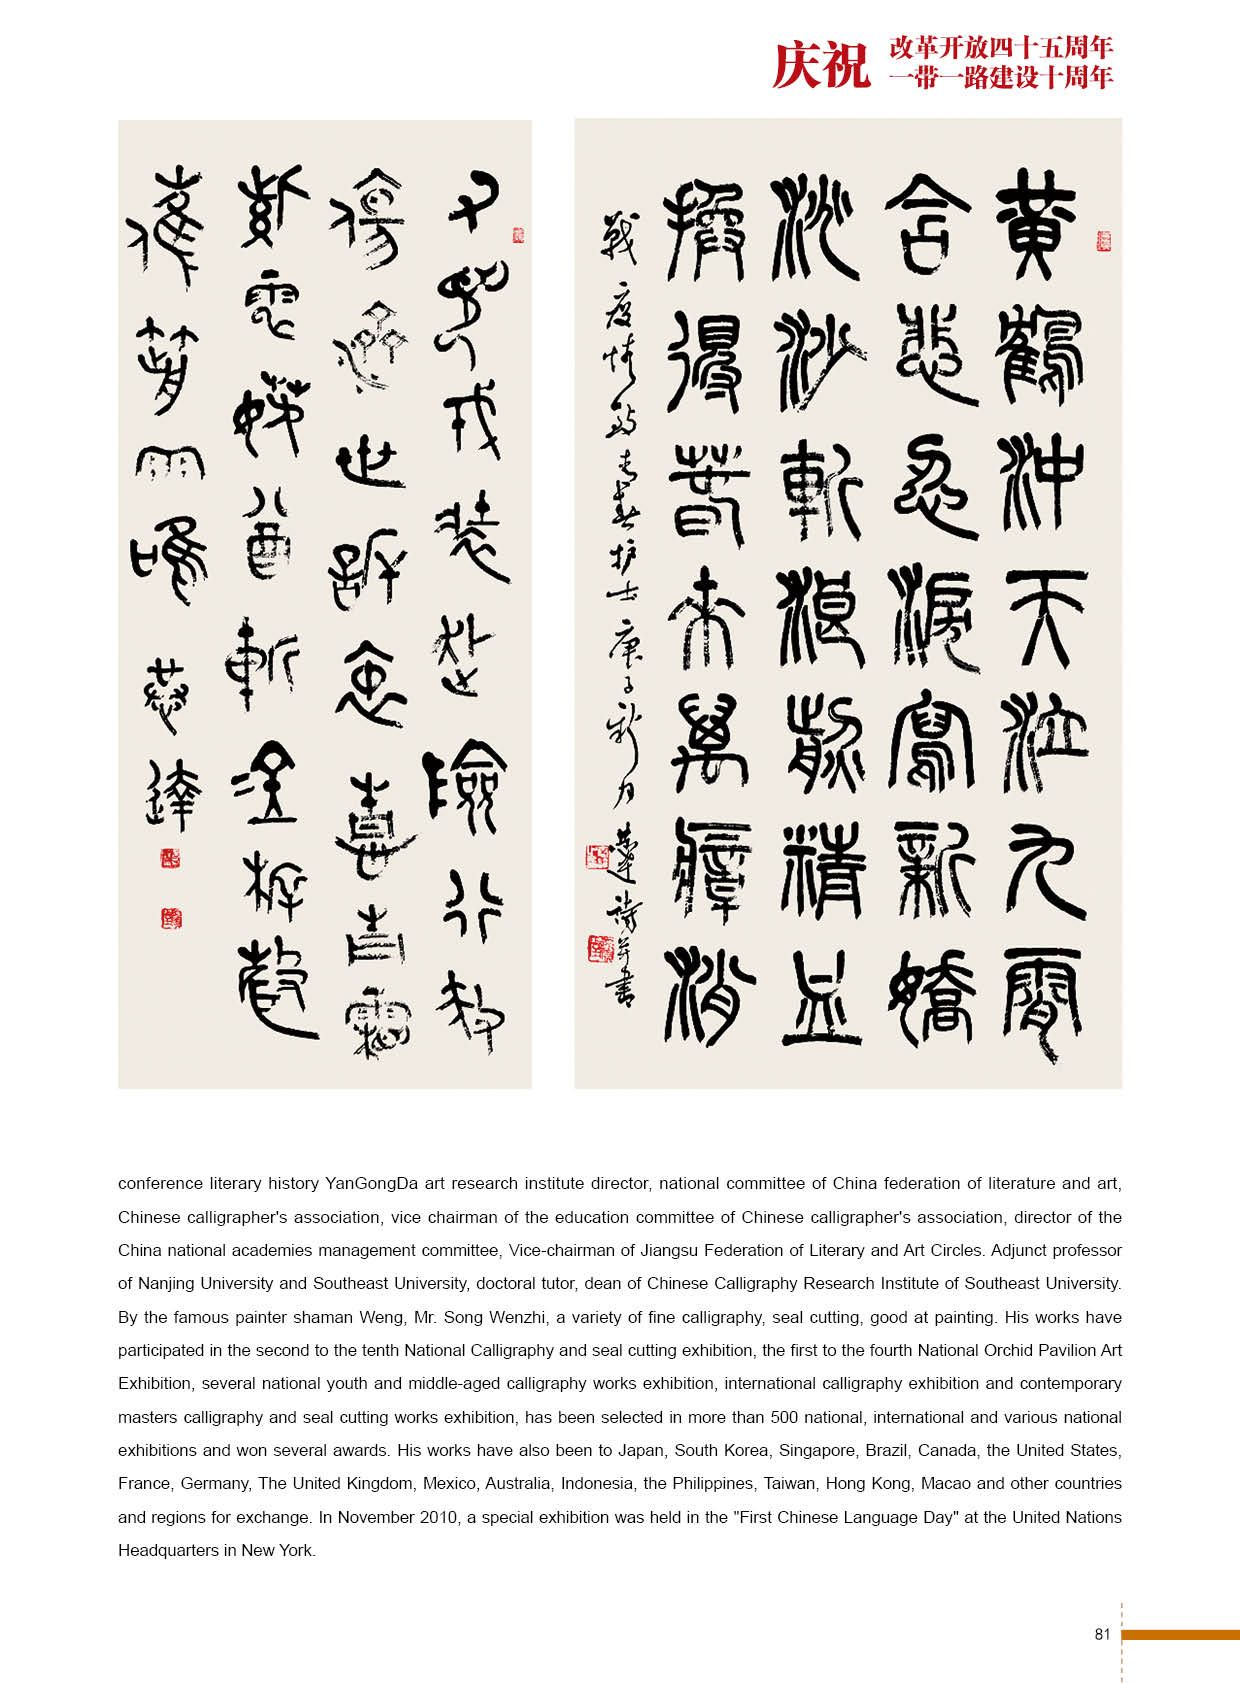 庆祝
改革开放四十五周年
一带一路建设十周年
黄鶴沖天泣九霄
含悲忍淚寫新嬌
沙斬浪 精
換得春来萬瘴消
戰疫情致青春护士 庚子 月 達詩并書
戎裝 險行
傷 世訴
斬
鳴 恭達
conference literary history YanGongDa art research institute director, national committee of China federation of literature and art,
Chinese calligrapher's association, vice chairman of the education committee of Chinese calligrapher's association, director of the
China national academies management committee, Vice-chairman of Jiangsu Federation of Literary and Art Circles. Adjunct professor
of Nanjing University and Southeast University, doctoral tutor, dean of Chinese Calligraphy Research Institute of Southeast University.
By the famous painter shaman Weng, Mr. Song Wenzhi, a variety of fine calligraphy, seal cutting, good at painting. His works have
participated in the second to the tenth National Calligraphy and seal cutting exhibition, the first to the fourth National Orchid Pavilion Art
Exhibition, several national youth and middle-aged calligraphy works exhibition, international calligraphy exhibition and contemporary
masters calligraphy and seal cutting works exhibition, has been selected in more than 500 national, international and various national
exhibitions and won several awards. His works have also been to Japan, South Korea, Singapore, Brazil, Canada, the United States,
France, Germany, The United Kingdom, Mexico, Australia, Indonesia, the Philippines, Taiwan, Hong Kong, Macao and other countries
and regions for exchange. In November 2010, a special exhibition was held in the "First Chinese Language Day" at the United Nations
Headquarters in New York.
81